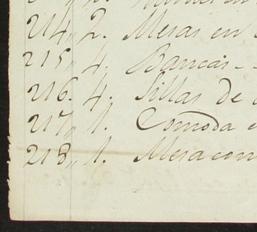 214,, 2. Mesas en
215,, 4. Bancas
216,, 4. Sillas de
217,, 1. Comoda
218,, 1. Mesa con